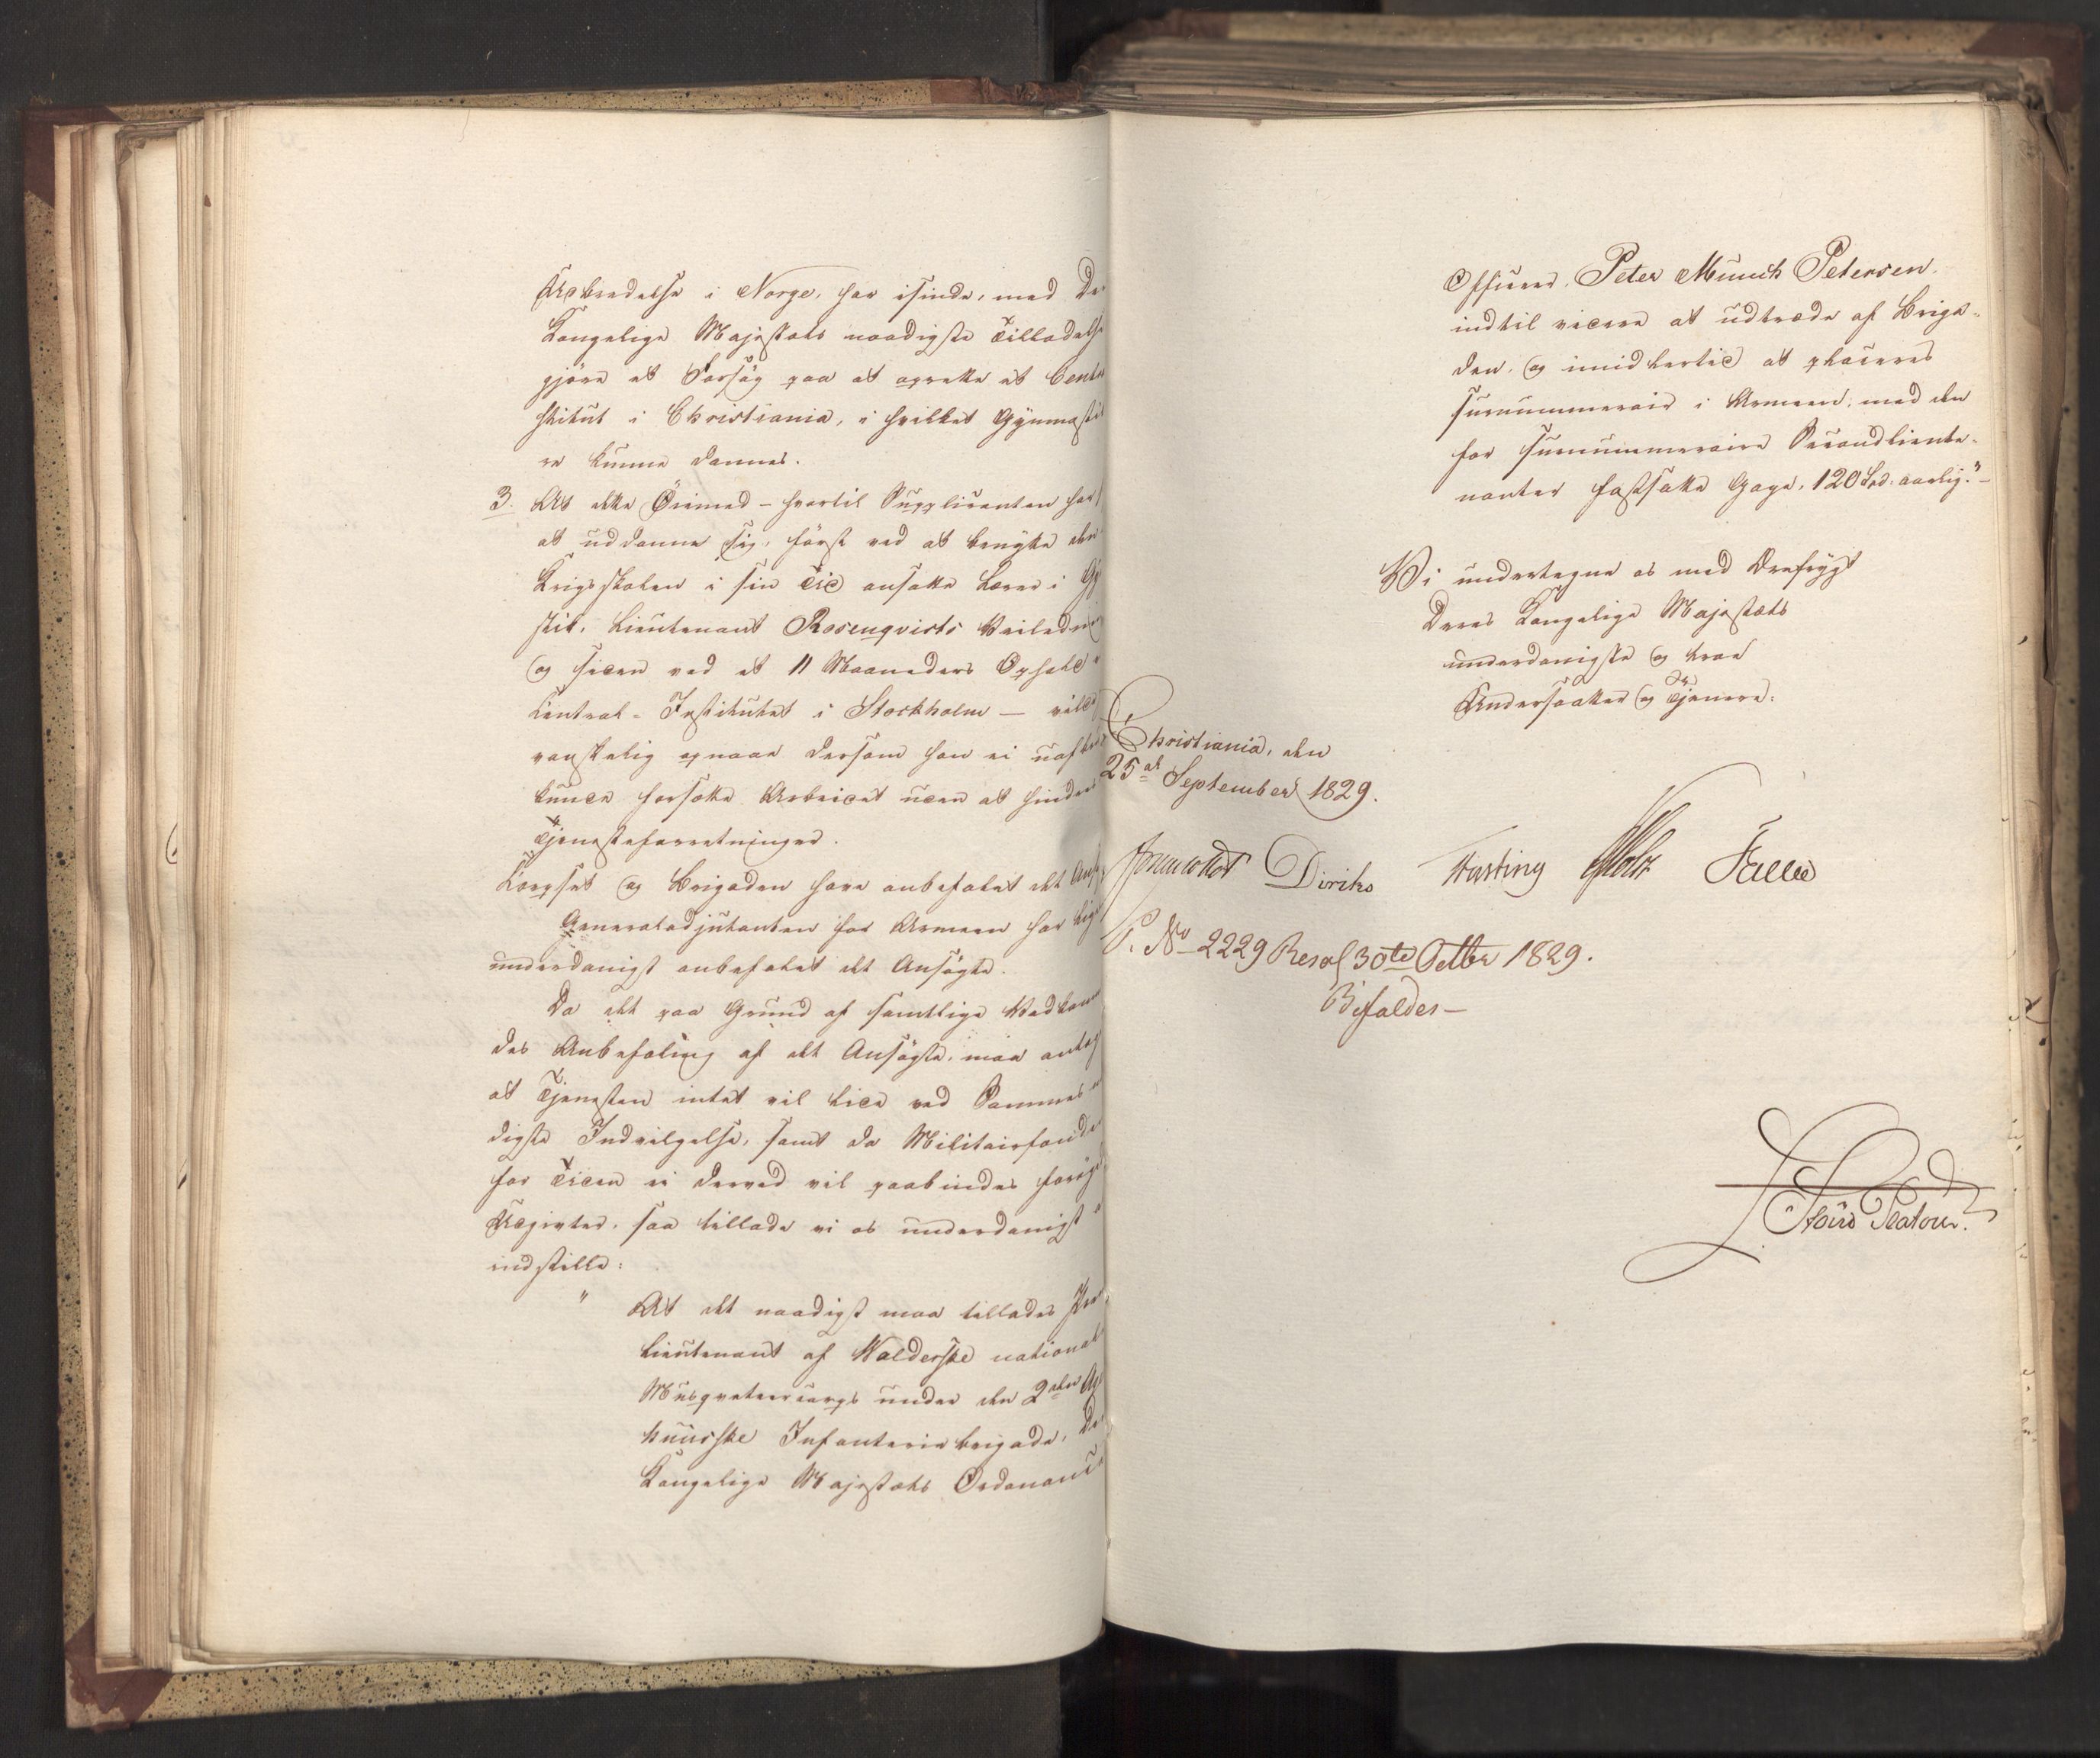 Udbredelse i Norge, har isinde, med De
Kongelige Majestæts naadigste Tilladelse
gjöre et Forsög paa at oprette et Centr
stitut i Christiania, i hvilket Gymnasti
re kunne dannes.
3. At dette Öiemed - hvortil Supplicanten har
at uddanne sig, först ved at benytte den
Krigsskolen i sin Tid ansatte Lærer i Gy
stik, Lieutenant Rosenqvists Veiledni
og siden ved et 11 Maaneders Ophold
Central-Institutet i Stockholm - vild
vanskelig opnaaes dersom han ei uafbr
kunde forsætte Arbeidet uden at hindres
Tjenesteforretninger.
Korpset og Brigaden have anbefalet det Ans
Generaladjutanten for Armeen har lige
underdanigst anbefalet det Ansögte.
Da det paa Grund af samtlige Vedkom
des Anbefaling af det Ansögte, maa antag
at Tjenesten intet vil lide ved Sammes
digste Indvilgelse, samt da Militairfonde
for Tiden ei derved vil paabindes foröge
Udgivter, saa tillade vi os underdanigst
indstille:
" At det naadigst maa tillades Pr
lieutenant af Walderske national
Musqueteercorps under den 2den Ag
huusske Infanteriebrigade, De
Kongelige Majestæts Ordonance
Officeer, Peter Munch Petersen,
indtil videre at udtræde af Briga-
den, og imidlertid at placeres
surnummerair i Armeen, med den
for surnummeraire Secondlieute-
nanter fastsatte Gage, 120 Spd. aarlig."-
Vi undertegne os med Ærefrygt
Deres Kongelige Majestæts
underdanigste og troe
Undersaatter og Tjenere.
Christiania, den
25de September 1829.
Diriks Hasting Holst Falbe
P. No 2229 Resol 30te Octbr 1829.
Bifaldes-